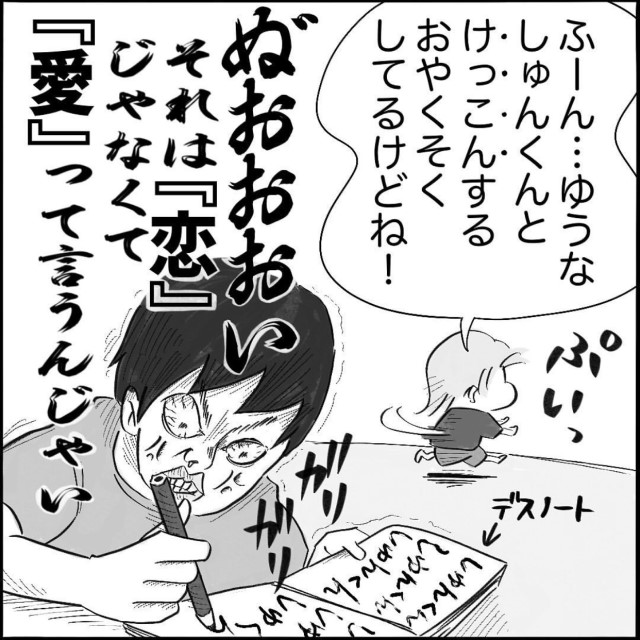 ふーん…ゆうな
しゅんくんと
けっこんする
おやくそく
してるけどね！
ぬ゛おおおおい
それは『恋』
じゃなくて
『愛』って言うんじゃい
ぷいっ
ガリ
ガリ
デスノート
しゅんくん
しゅんくん
しゅんくん